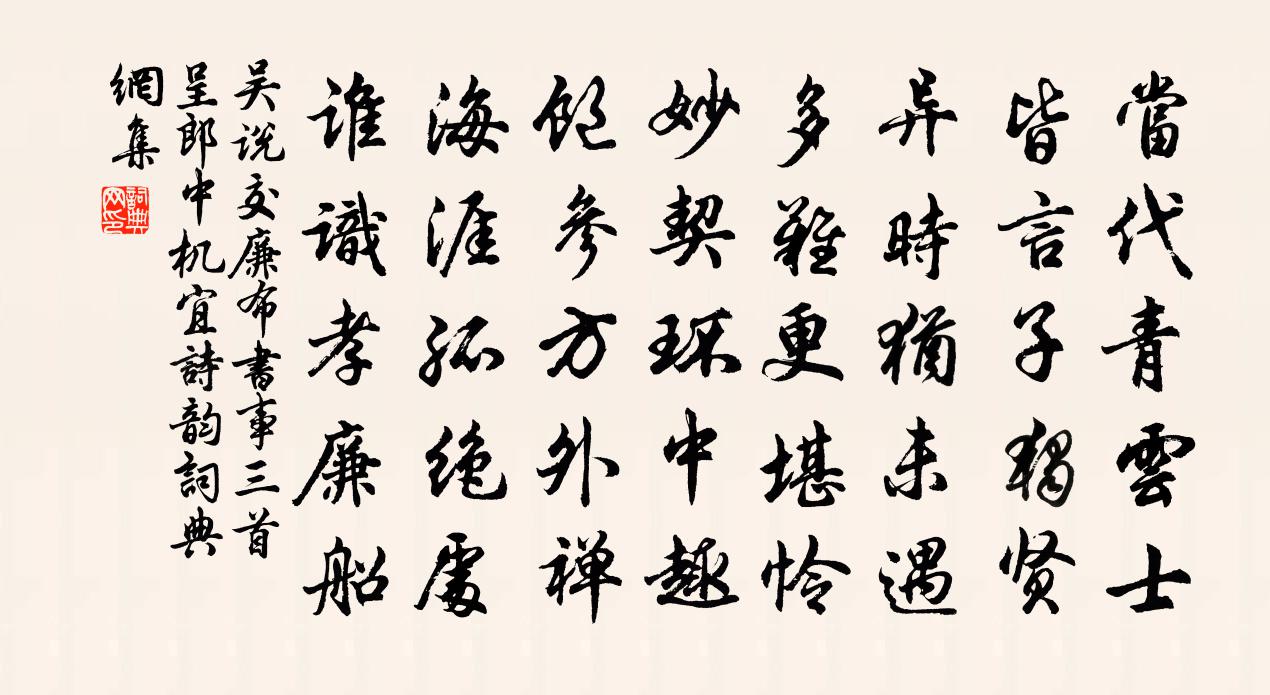 當代青雲士
皆言子獨贤
异時猶未遇
多難更堪怜
妙契环中趣
饱參方外禅
海涯孤绝處
谁識孝廉船
吴说交廉布書事三首
呈郎中机宜詩韵詞典
網集
詞典網印